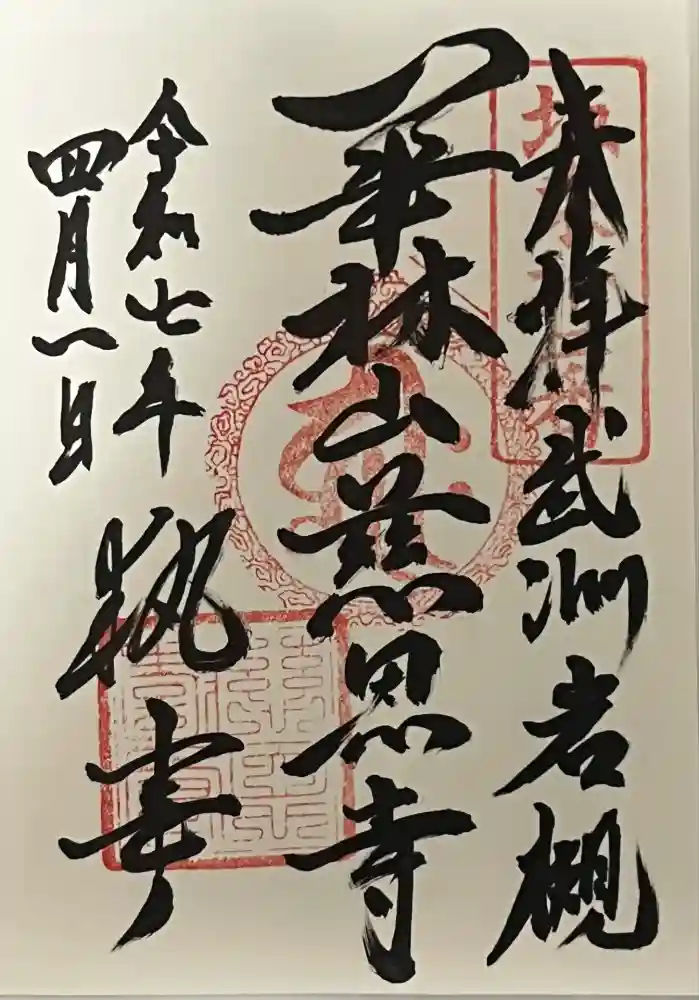 奉拝武州岩槻
華林山慈恩寺
令和七年
四月一日
執事